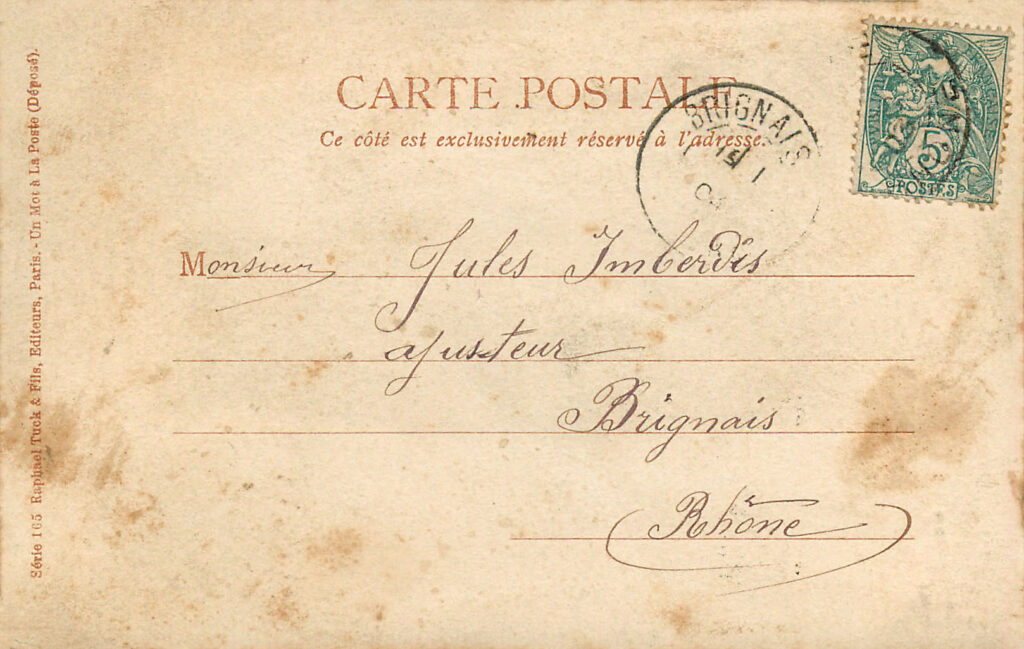 CARTE POSTALE
Ce côté est exclusivement réservé à l'adresse.
BRIGNAIS
5
POSTES
Monsieur Jules Imberdis
ajusteur
Brignais
Rhône
Série 165 Raphael Tuck & Fils, Editeurs, Paris. - Un Mot à La Poste (Déposé).